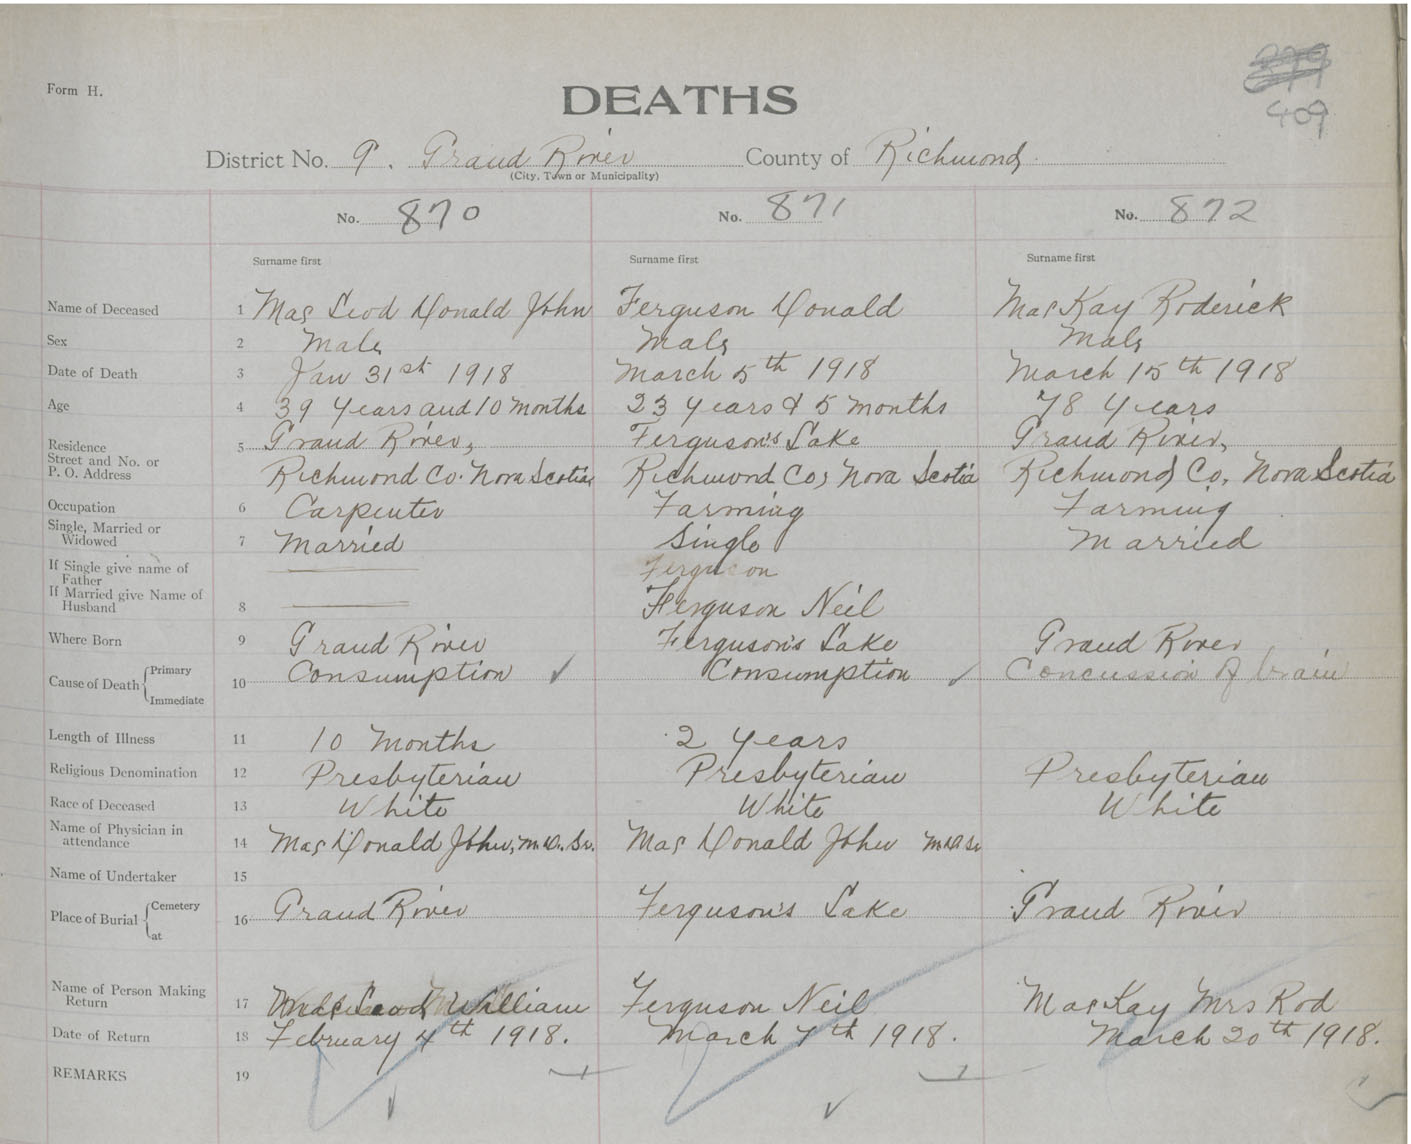 409
Form H.
DEATHS
District No. 9. Grand River County of Richmond
(City, Town or Municipality)
No. 870 No. 871 No. 872
Surname first Surname first Surname first
Name of Deceased 1 Mac Leod Donald John Ferguson Donald MacKay Roderick
Sex 2 Male Male Male
Date of Death 3 Jan 31st 1918 March 5th 1918 March 15th 1918
Age 4 39 years and 10 months 23 years & 5 months 78 years
Residence 5 Grand River, Ferguson's Lake Grand River,
Street and No. or
P. O. Address Richmond Co. Nova Scotia Richmond Co, Nova Scotia Richmond Co, Nova Scotia
Occupation 6 Carpenter Farming Farming
Single, Married or
Widowed 7 Married Single Married
If Single give name of
Father Ferguson
If Married give Name of
Husband 8 Ferguson Neil
Where Born 9 Grand River Ferguson's Lake Grand River
Cause of Death Primary
10 Consumption ✓ Consumption ✓ Concussion of brain
Immediate
Length of Illness 11 10 Months 2 years
Religious Denomination 12 Presbyterian Presbyterian Presbyterian
Race of Deceased 13 White White White
Name of Physician in
attendance 14 Mac Donald John, M.D. Sr. Mac Donald John M D Sr
Name of Undertaker 15
Place of Burial Cemetery
16 Grand River Ferguson's Lake Grand River
at
Name of Person Making
Return 17 William Ferguson Neil MacKay Mrs Rod
Date of Return 18 February 4th 1918. March 7th 1918. March 20th 1918.
REMARKS 19